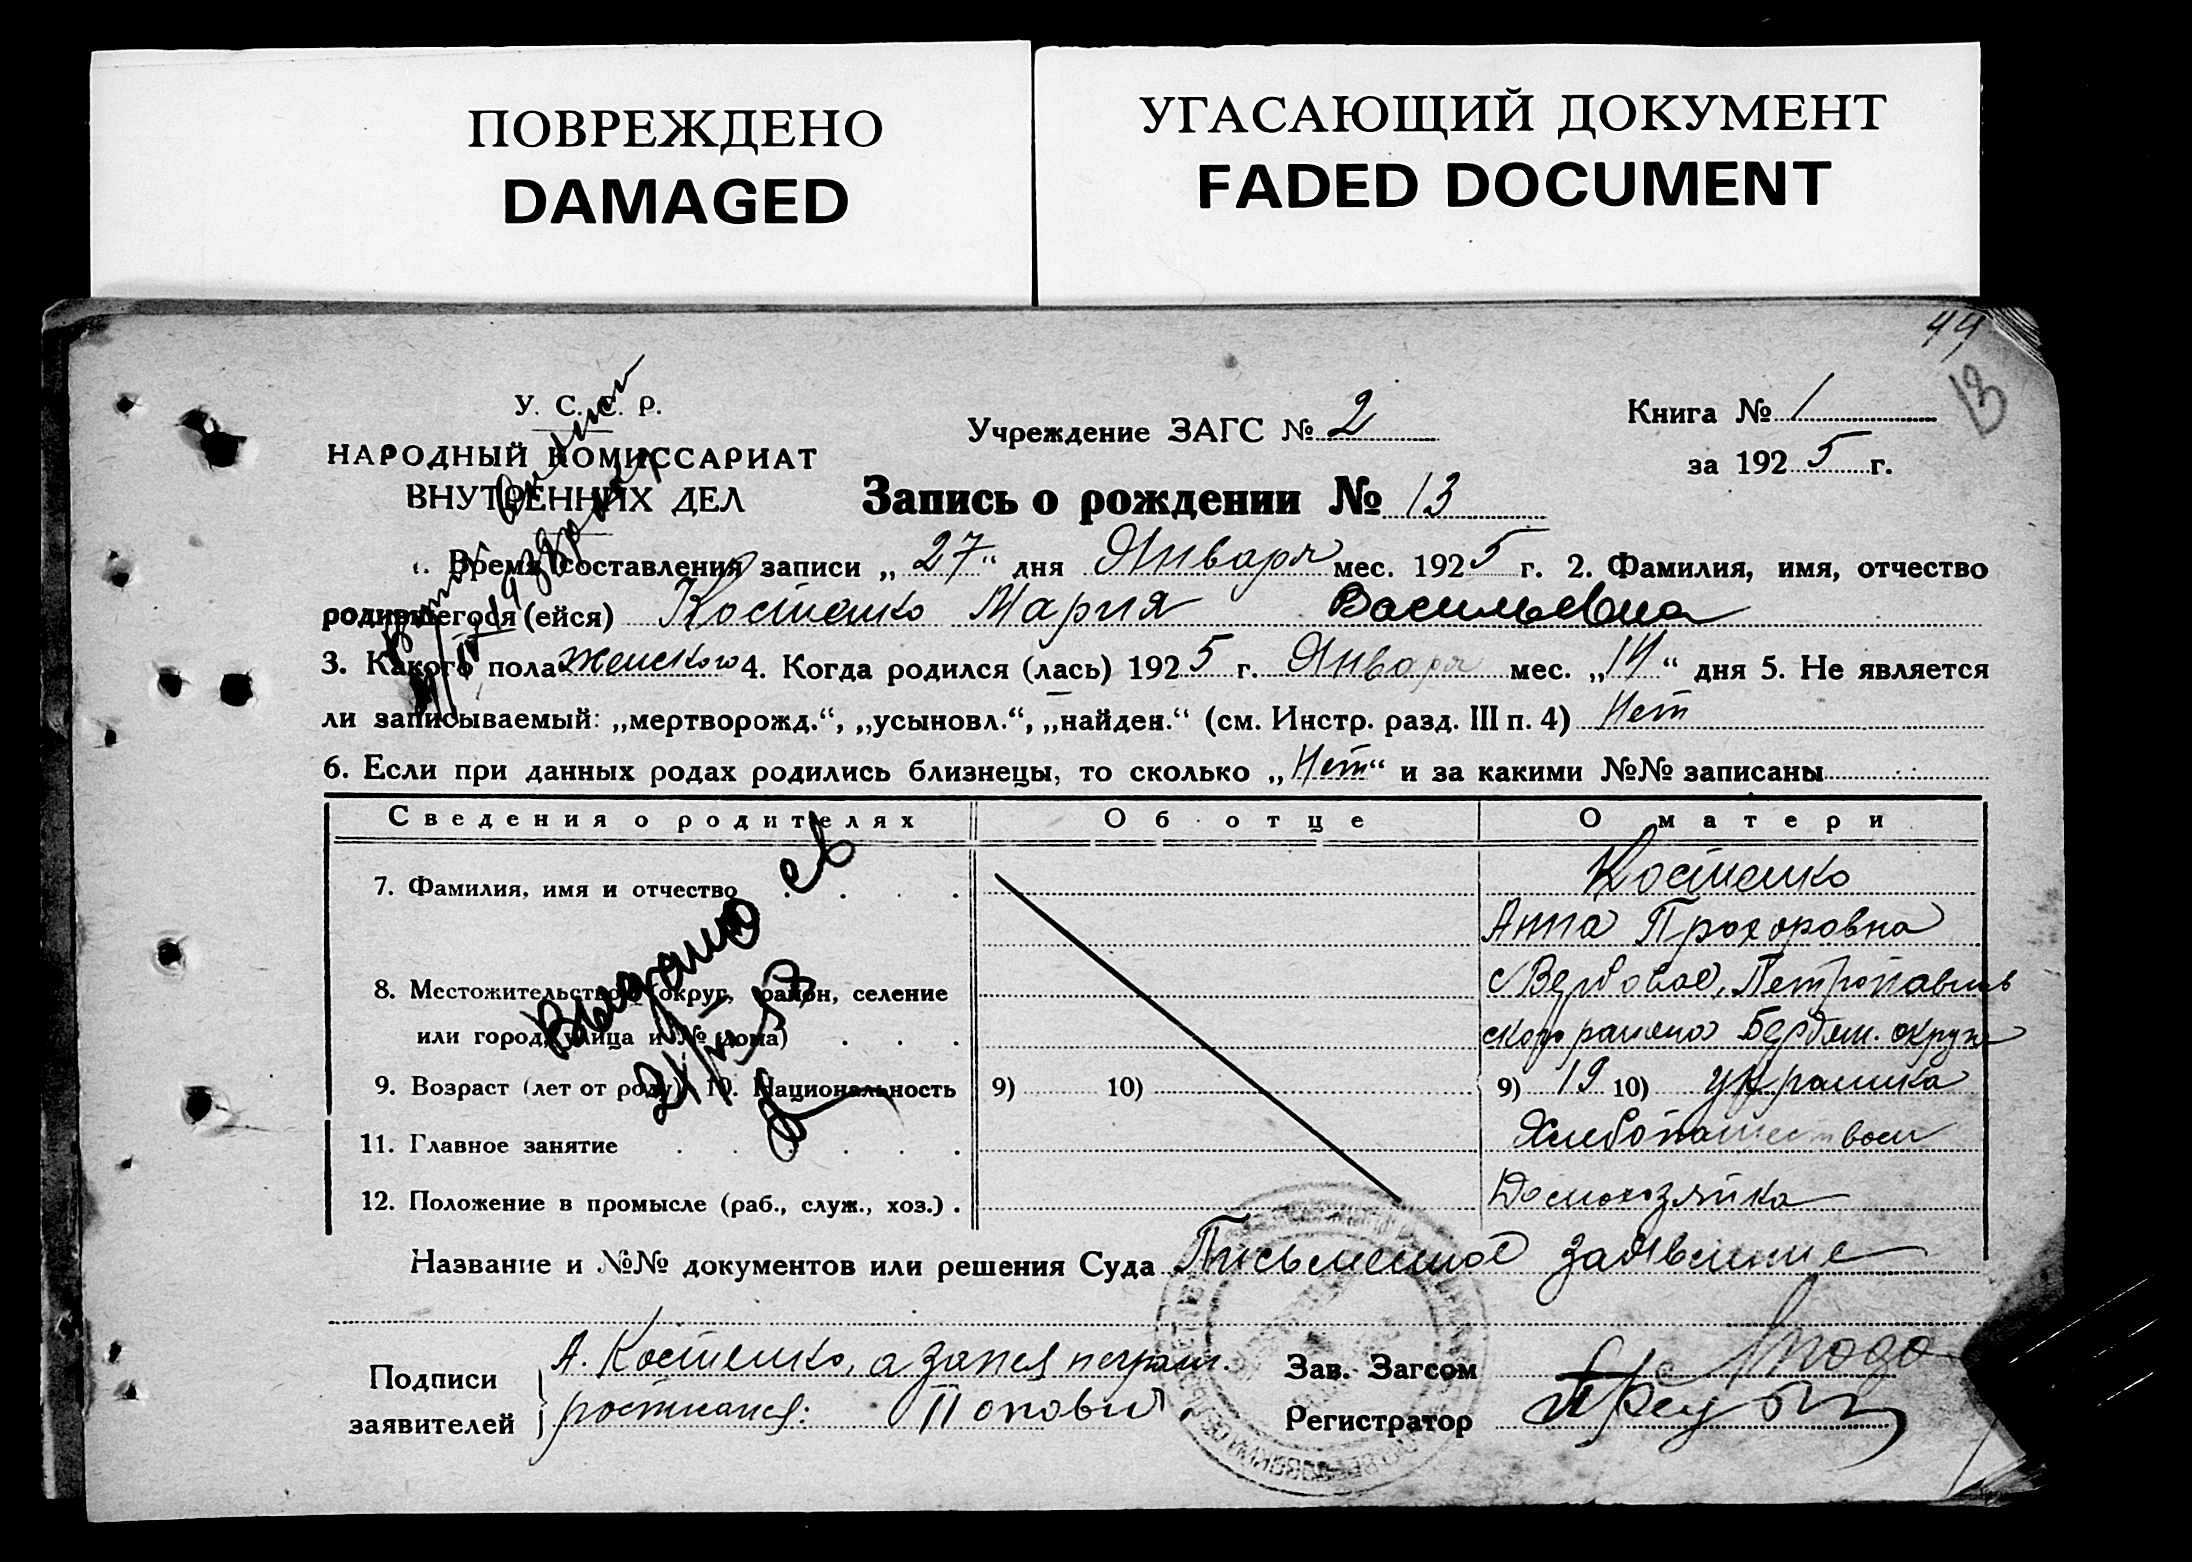 ПОВРЕЖДЕНО
DAMAGED
УГАСАЮЩИЙ ДОКУМЕНТ
FADED DOCUMENT
44
13
У. С. С. Р.
НАРОДНЫЙ КОМИССАРИАТ
ВНУТРЕННИХ ДЕЛ
Учреждение ЗАГС № 2
Книга № 1
за 1925 г.
Запись о рождении № 13
1. Время составления записи „27“ дня Января мес. 1925 г. 2. Фамилия, имя, отчество
родившегося (ейся) Костенко Мария Васильевна
3. Какого пола женского 4. Когда родился (лась) 1925 г. Января мес. „14“ дня 5. Не является
ли записываемый: „мертворожд.“, „усыновл.“, „найден.“ (см. Инстр. разд. III п. 4) Нет
6. Если при данных родах родились близнецы, то сколько „Нет“ и за какими №№ записаны
Сведения о родителях Об отце О матери
7. Фамилия, имя и отчество Костенко
Анна Прохоровна
8. Местожительство (округ, район, селение с Вербовое, Петропавлов
или город, улица и № дома) ского района Бердян. округа
9. Возраст (лет от роду) 10. Национальность 9) 10) 9) 19 10) украинка
11. Главное занятие Хлебопашеством
12. Положение в промысле (раб., служ., хоз.) Домохозяйка
Выдано св
Название и №№ документов или решения Суда Письменное заявление
Подписи заявителей А. Костенко, а за нея неграм.
росписался: Попович
Зав. Загсом
Регистратор